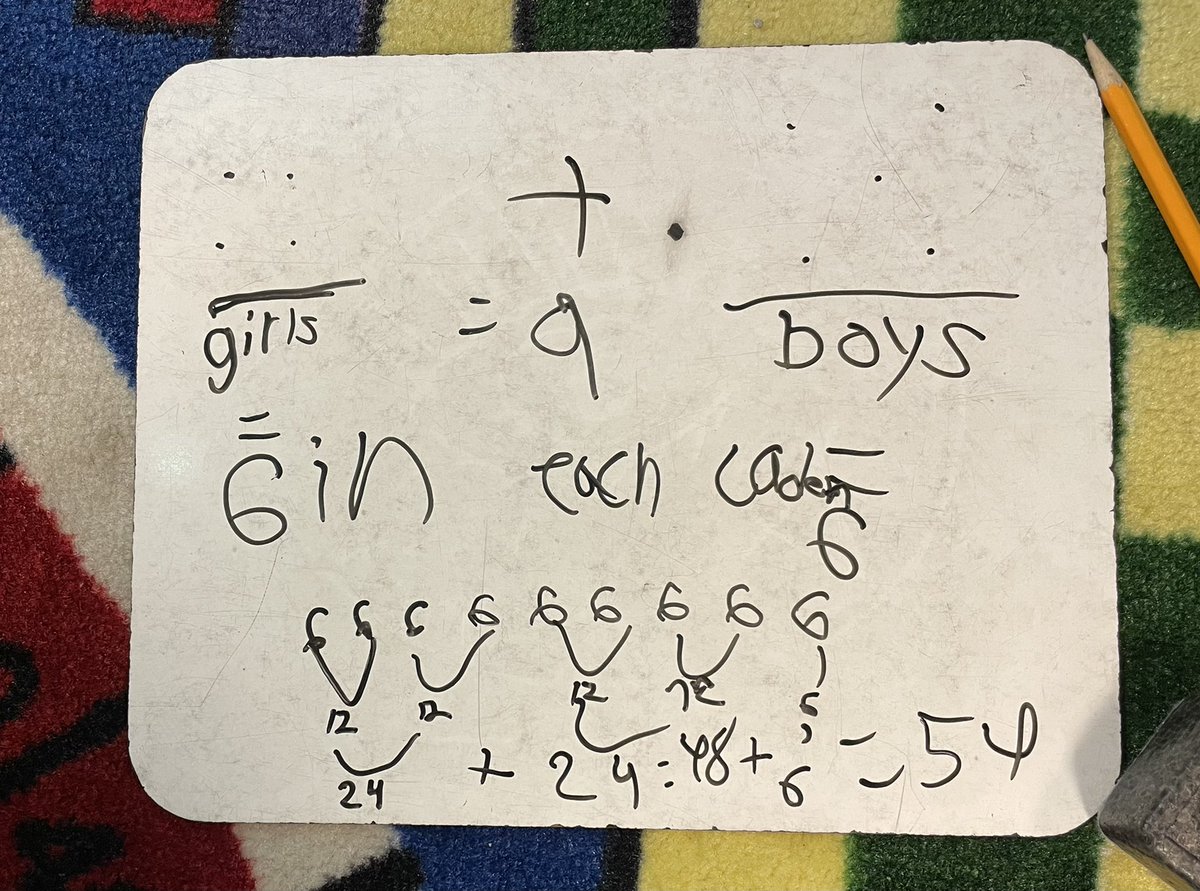 +
girls = 9 boys
= 6 in each =
6
6 6 6 6 6 6 6 6 6
12 12 12 12 6
24 + 24 = 48 + 6 = 54